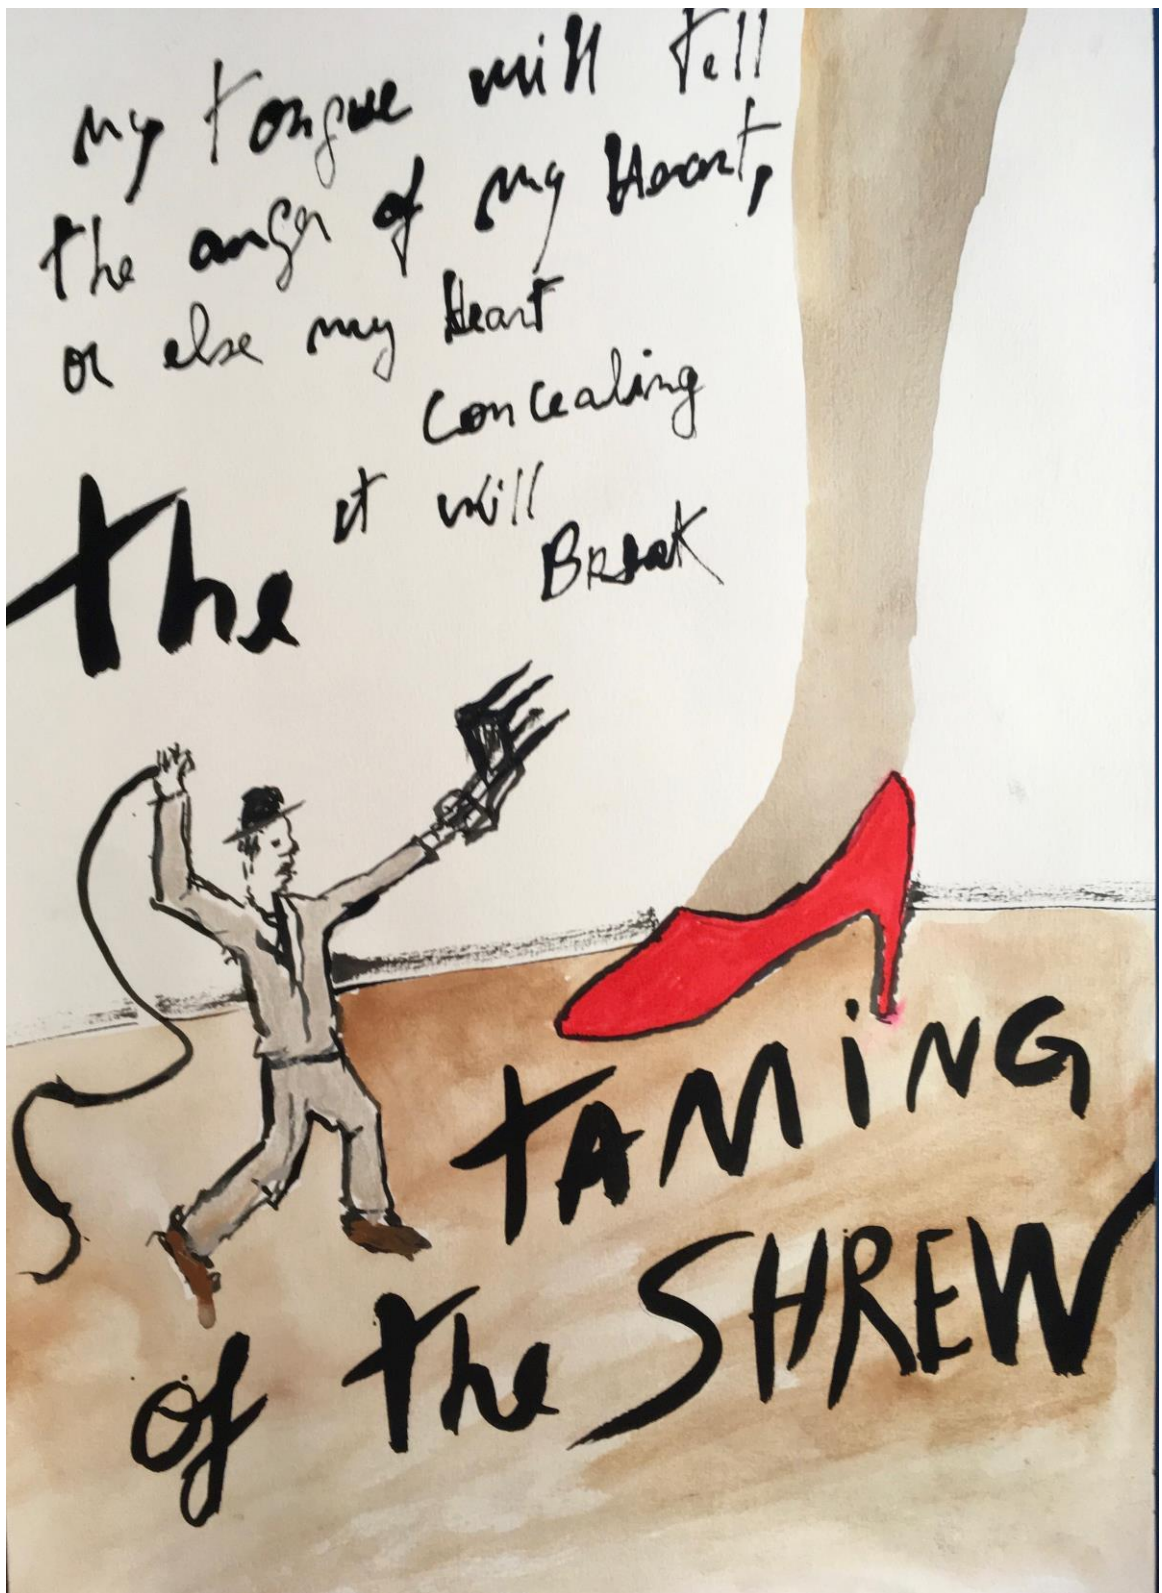 my tongue will tell
the anger of my Heart,
or else my Heart
concealing
it will
Break
The
TAMiNG
of the SHREW